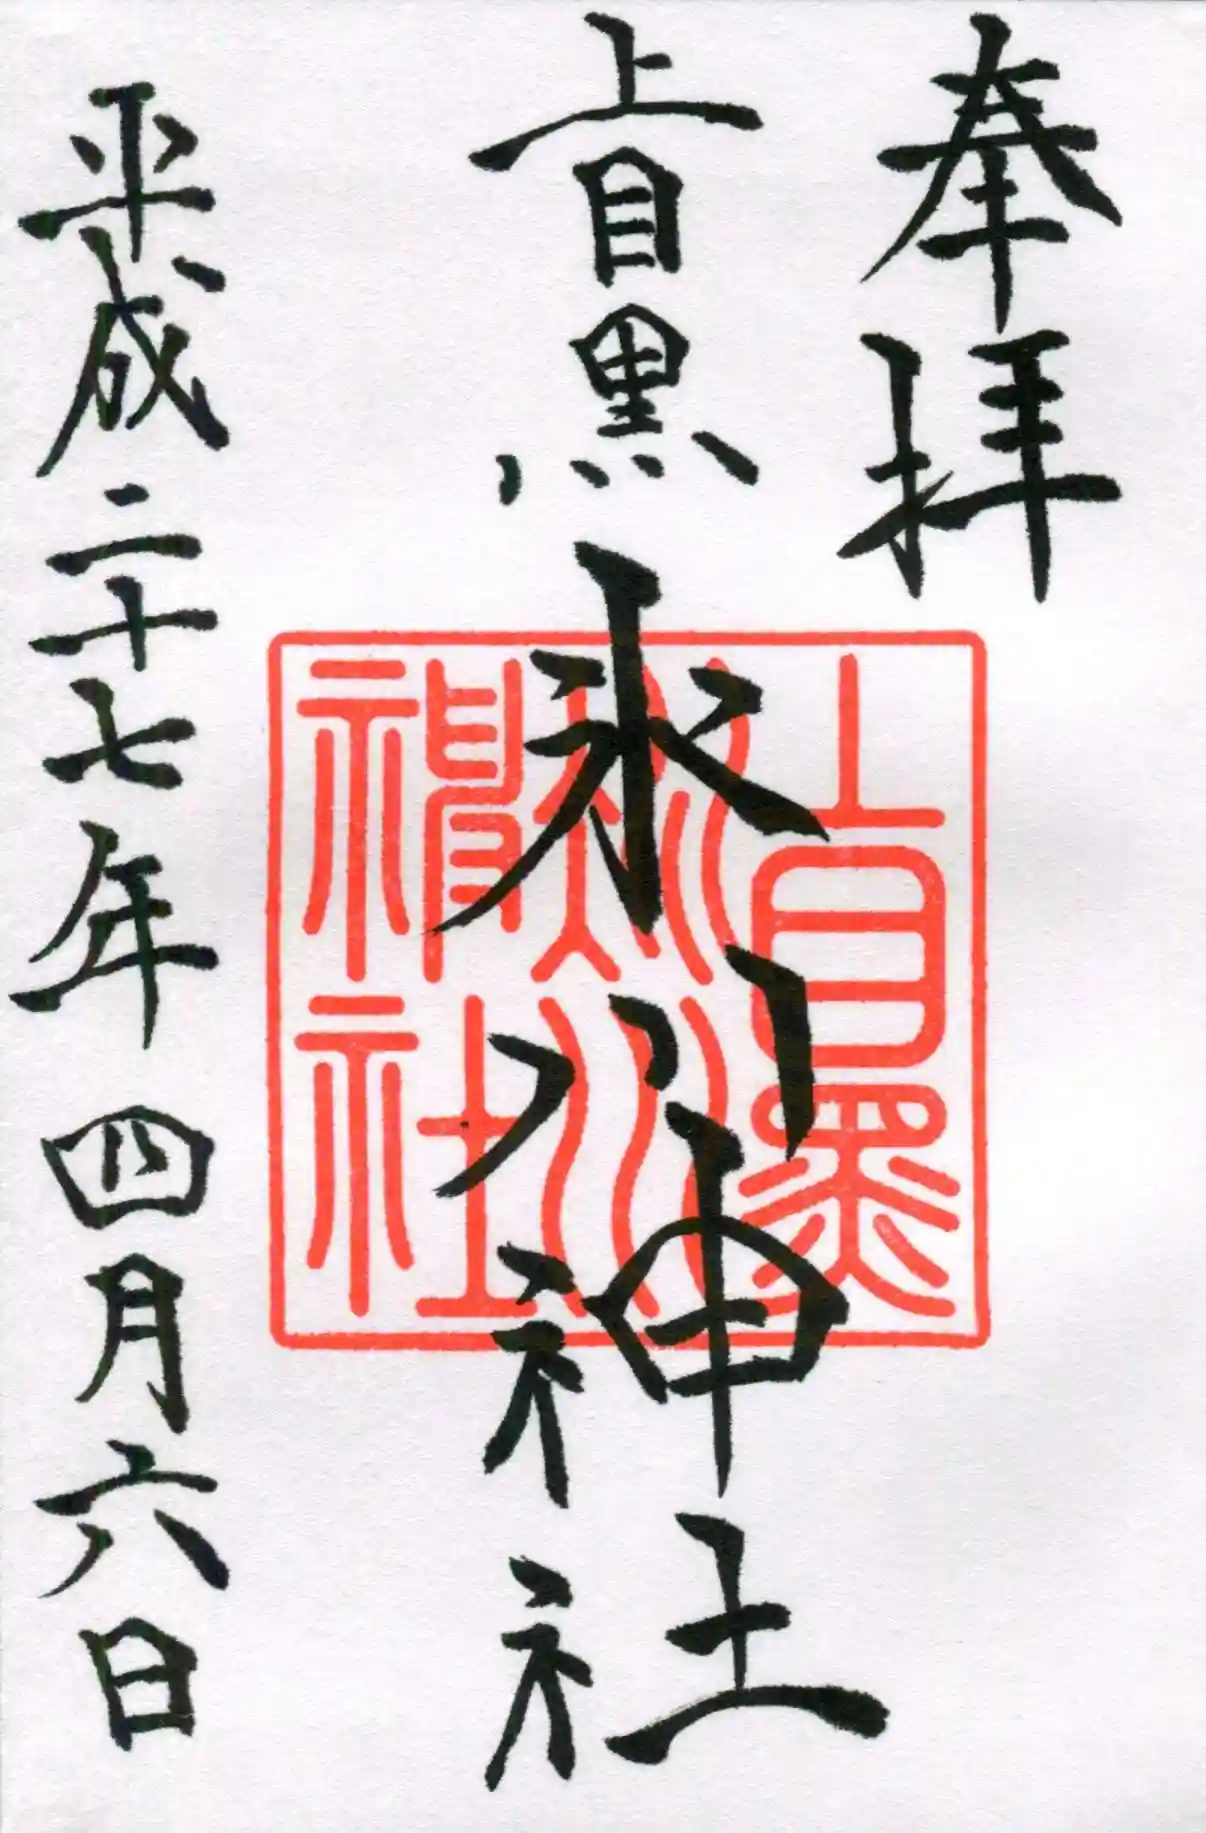 奉拝
上目黒氷川神社
上目黒氷川神社
平成二十七年四月六日